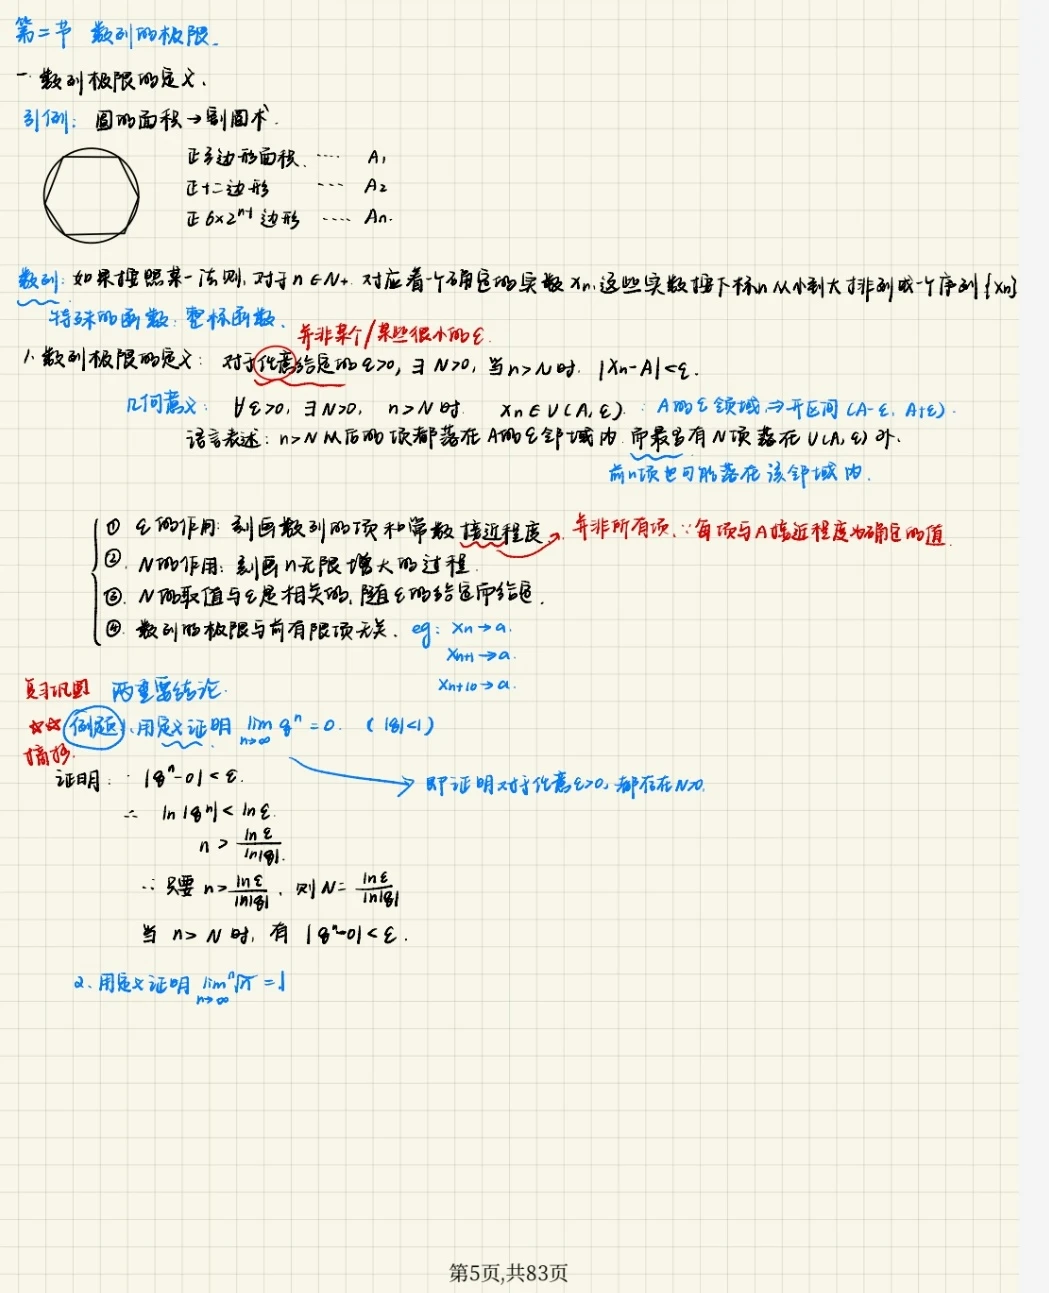 第二节 数列的极限.
一. 数列极限的定义.
引例: 圆的面积→割圆术.
正多边形面积. ···· A₁
正十二边形 ···· A₂
正6×2ⁿ⁻¹边形 ···· An.
数列: 如果按照某一法则, 对于n∈N₊. 对应着一个确定的实数xn, 这些实数按下标n从小到大排列成一个序列{xn}
特殊的函数: 整标函数.
并非某个/某些很小的ε.
1. 数列极限的定义: 对于任意给定的ε>0, ∃N>0, 当n>N时. |xn-A|<ε.
几何意义: ∀ε>0, ∃N>0, n>N时. xn∈U(A,ε). : A的ε领域⇒开区间(A-ε, A+ε).
语言表述: n>N以后的项都落在A的ε邻域内. 即最多有N项落在U(A,ε)外.
前n项也可能落在该邻域内.
① ε的作用: 刻画数列的项和常数接近程度. 并非所有项, ∵每项与A接近程度为确定的值
②. N的作用: 刻画n无限增大的过程.
③. N的取值与ε是相关的, 随ε的给定而给定.
④. 数列的极限与前有限项无关. eg: xn→a.
xn+1→a.
xn+10→a.
复习巩固 两重要结论.
☆☆ 例题1. 用定义证明 lim n→∞ qⁿ=0. (|q|<1)
摘抄.
证明: ∵|qⁿ-0|<ε. → 即证明对于任意ε>0, 都存在N>0.
∴ ln|qⁿ|<lnε.
n > lnε/ln|q|.
∴只要n>lnε/ln|q|. 则N=lnε/ln|q|
当n>N时, 有|qⁿ-0|<ε.
2. 用定义证明 lim n→∞ ⁿ√π =1
第5页,共83页